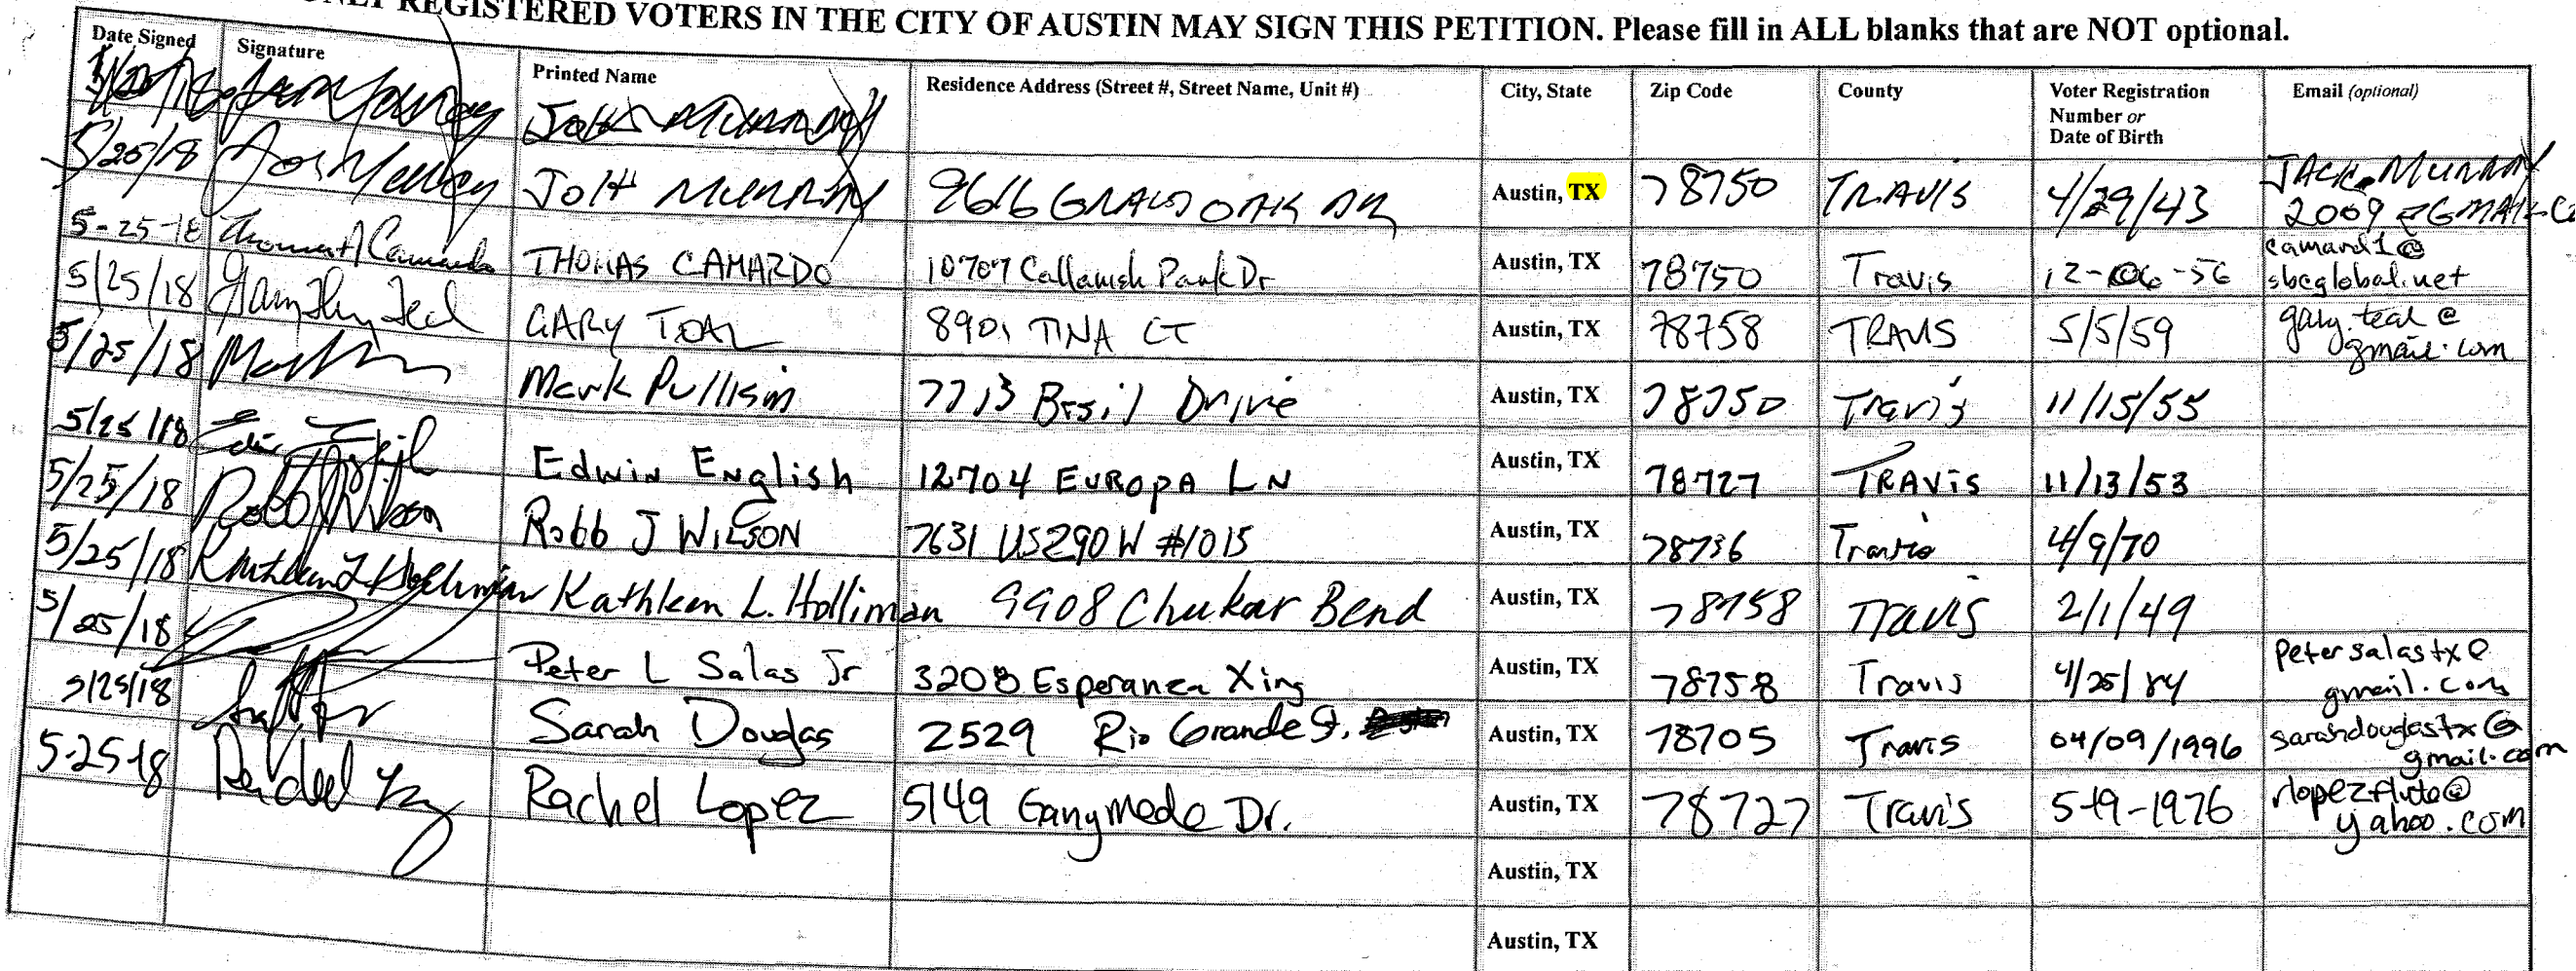 ONLY REGISTERED VOTERS IN THE CITY OF AUSTIN MAY SIGN THIS PETITION. Please fill in ALL blanks that are NOT optional.
Date Signed Signature Printed Name Residence Address (Street #, Street Name, Unit #) City, State Zip Code County Voter Registration Number or Date of Birth Email (optional)
5/25/18 MURRAY 9616 OAK DR Austin, TX 78750 TRAVIS 4/29/43 JACK.MURRAY 2009 @GMAIL.CO
5-25-18 Thomas Camardo THOMAS CAMARDO 10707 Callanish Park Dr Austin, TX 78750 Travis 12-06-56 camard1@ sbcglobal.net
5/25/18 GARY 8901 TINA CT Austin, TX 78758 TRAVIS 5/5/59 gary.teal@ gmail.com
5/25/18 Mark Pulliam 7713 Drive Austin, TX 78750 Travis 11/15/55
5/25/18 Edwin English 12704 EUROPA LN Austin, TX 78727 TRAVIS 11/13/53
5/25/18 Robb J Wilson Robb J WILSON 7631 US290W #1015 Austin, TX 78736 Travis 4/9/70
5/25/18 Kathleen L Holliman Kathleen L. Holliman 9908 Chukar Bend Austin, TX 78758 Travis 2/1/49
5/25/18 Peter L Salas Jr 3208 Esperanza Xing Austin, TX 78758 Travis 4/25/84 petersalastx@ gmail.com
5/25/18 Sarah Douglas 2529 Rio Grande St. Austin, TX 78705 Travis 04/09/1996 sarahdouglastx@ gmail.com
5-25-18 Rachel Lopez 5149 Ganymede Dr. Austin, TX 78727 Travis 5-19-1976 rlopezflute@ yahoo.com
Austin, TX
Austin, TX